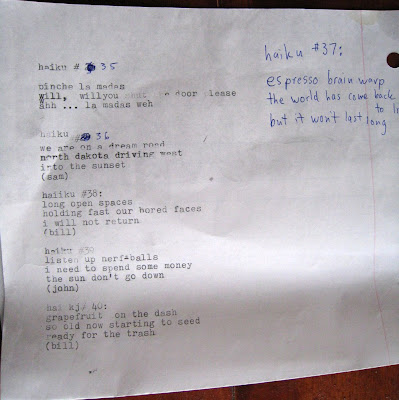 haiku # 35
pinche la madas
will, willyou shut the door please
ahh ... la madas weh
haiku #36
we are on a dream road
north dakota driving west
into the sunset
(sam)
haiiku #38:
long open spaces
holding fast our bored faces
i will not return
(bill)
haiku #39
listen up nerf-balls
i need to spend some money
the sun don't go down
(john)
hai kj) 40:
grapefruit on the dash
so old now starting to seed
ready for the trash
(bill)
haiku #37:
espresso brain warp
the world has come back
to
but it wont last long